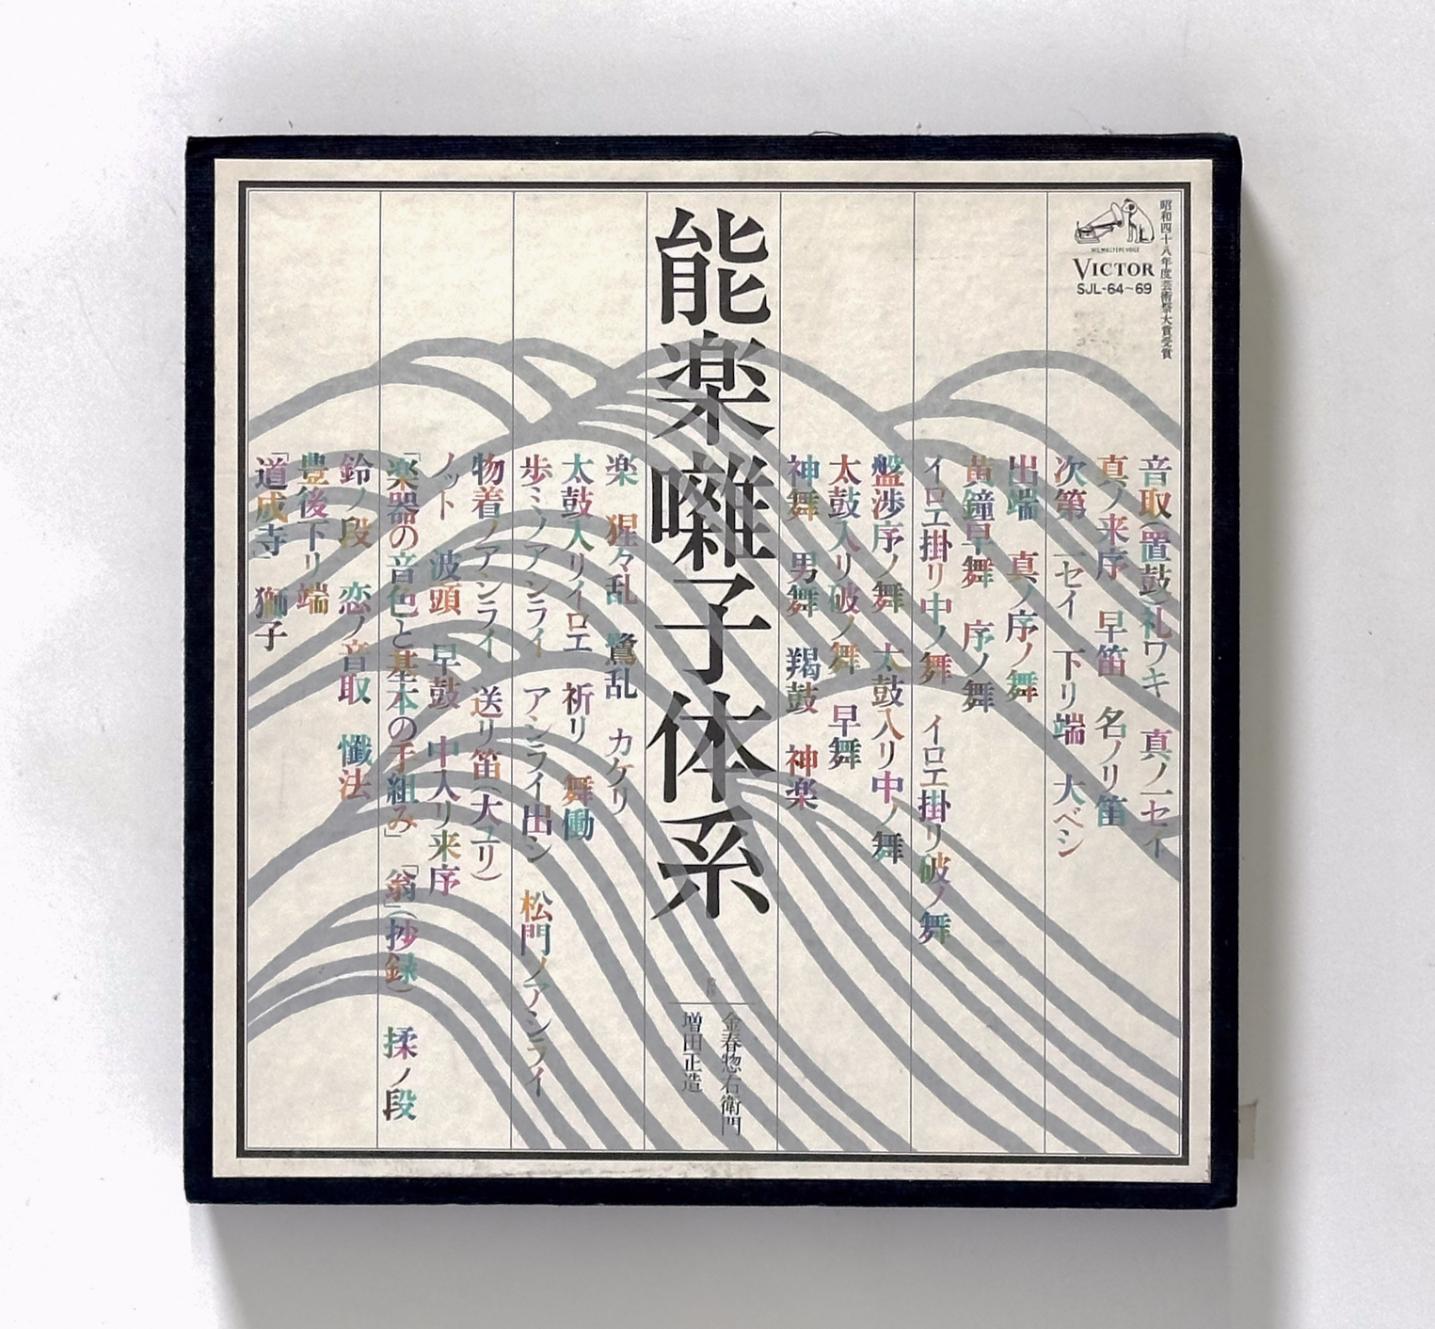 昭和四十八年度芸術祭大賞受賞
VICTOR
SJL-64~69
音取(置鼓)礼ワキ 真ノ一セイ
真ノ来序 早笛 名ノリ笛
次第 一セイ 下リ端 大ベシ
出端 真ノ序ノ舞
黄鐘早舞 序ノ舞
イロエ掛リ中ノ舞 イロエ掛リ破ノ舞
盤渉序ノ舞 太鼓入リ中ノ舞
太鼓入リ破ノ舞 早舞
神舞 男舞 羯鼓 神楽
能楽囃子体系
金春惣右衛門
増田正造
楽 猩々乱 鷺乱 カケリ
太鼓入リイロエ 祈リ 舞働
歩ミノアシライ アシライ出シ 松門ノアシライ
物着ノアシライ 送リ笛(大ユリ)
ノット 波頭 早鼓 中入リ来序
「楽器の音色と基本の手組み」 「翁」(抄録) 揉ノ段
鈴ノ段 恋ノ音取 懺法
豊後下リ端
「道成寺」 獅子